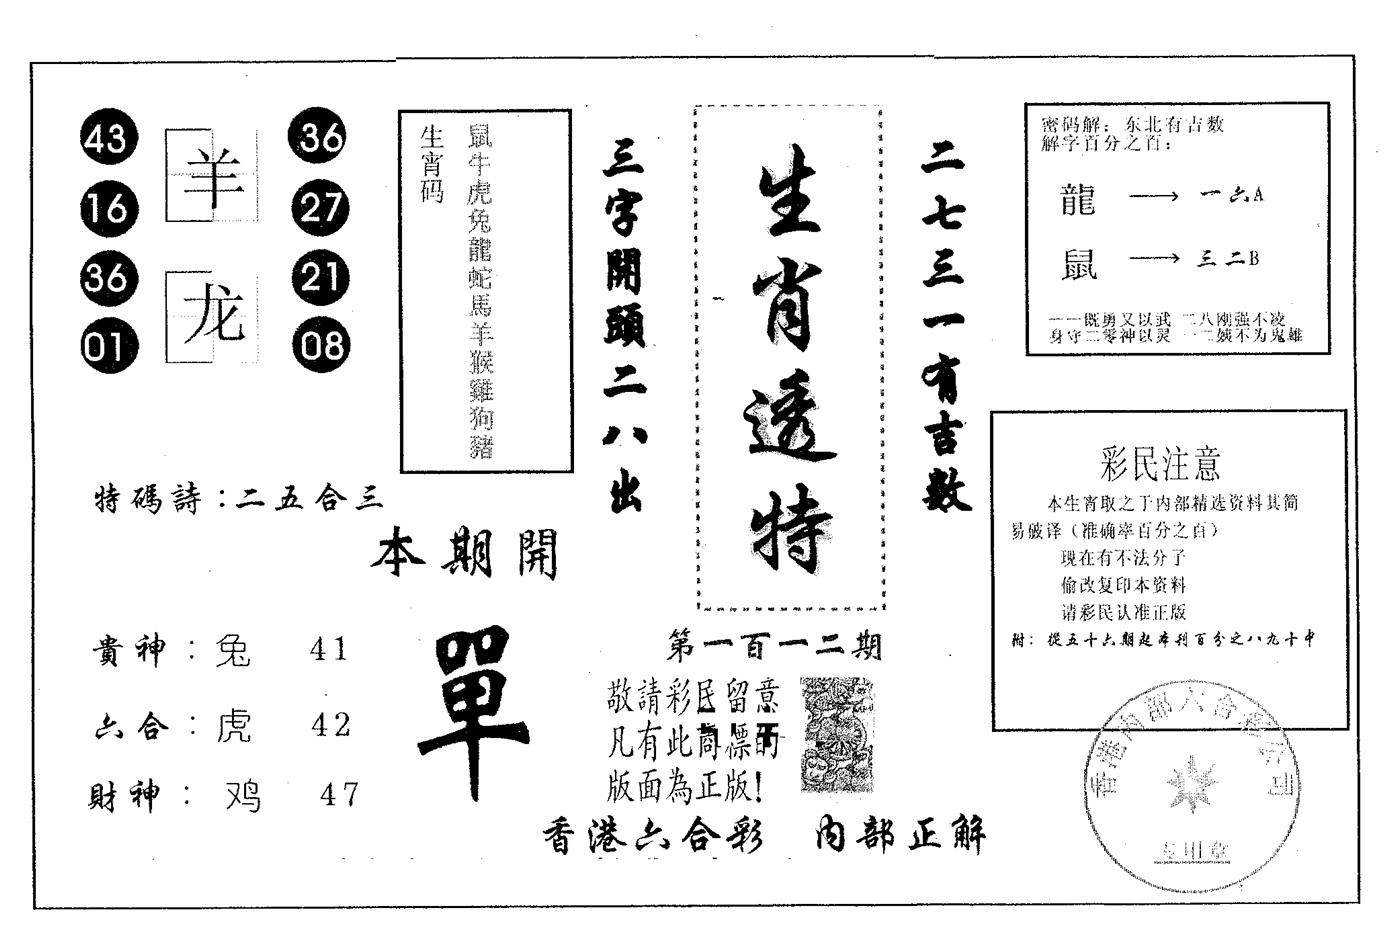 43
羊
36
16
27
36
龙
21
01
08
生宵码
鼠牛虎兔龍蛇馬羊猴雞狗豬
特碼詩：二五合三
本期開
單
貴神：兔 41
六合：虎 42
財神：鸡 47
三字開頭二八出
生肖透特
二七三一有吉数
第一百一二期
敬請彩民留意
凡有此商標的
版面為正版！
香港六合彩 内部正解
密码解：东北有吉数
解字百分之百：
龍 → 一六A
鼠 → 三二B
一一既勇又以武 二八刚强不凌
身守二零神以灵 一二娥不为鬼雄
彩民注意
本生宵取之于内部精选资料其简
易破译（准确率百分之百）
现在有不法分子
偷改复印本资料
请彩民认准正版
附：從五十六期起本刊百分之八九十中
香港内部六合彩公司
专用章